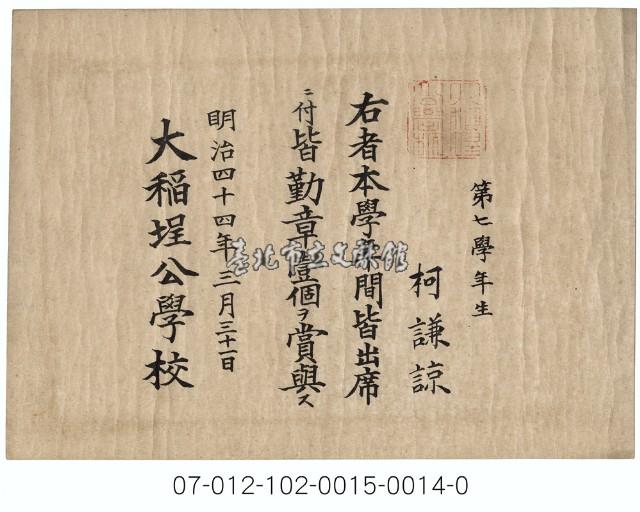 第七學年生
柯謙諒
右者本學年間皆出席
ニ付皆勤章壹個ヲ賞與ス
明治四十四年三月三十一日
大稻埕公學校
臺北市立文獻館
07-012-102-0015-0014-0